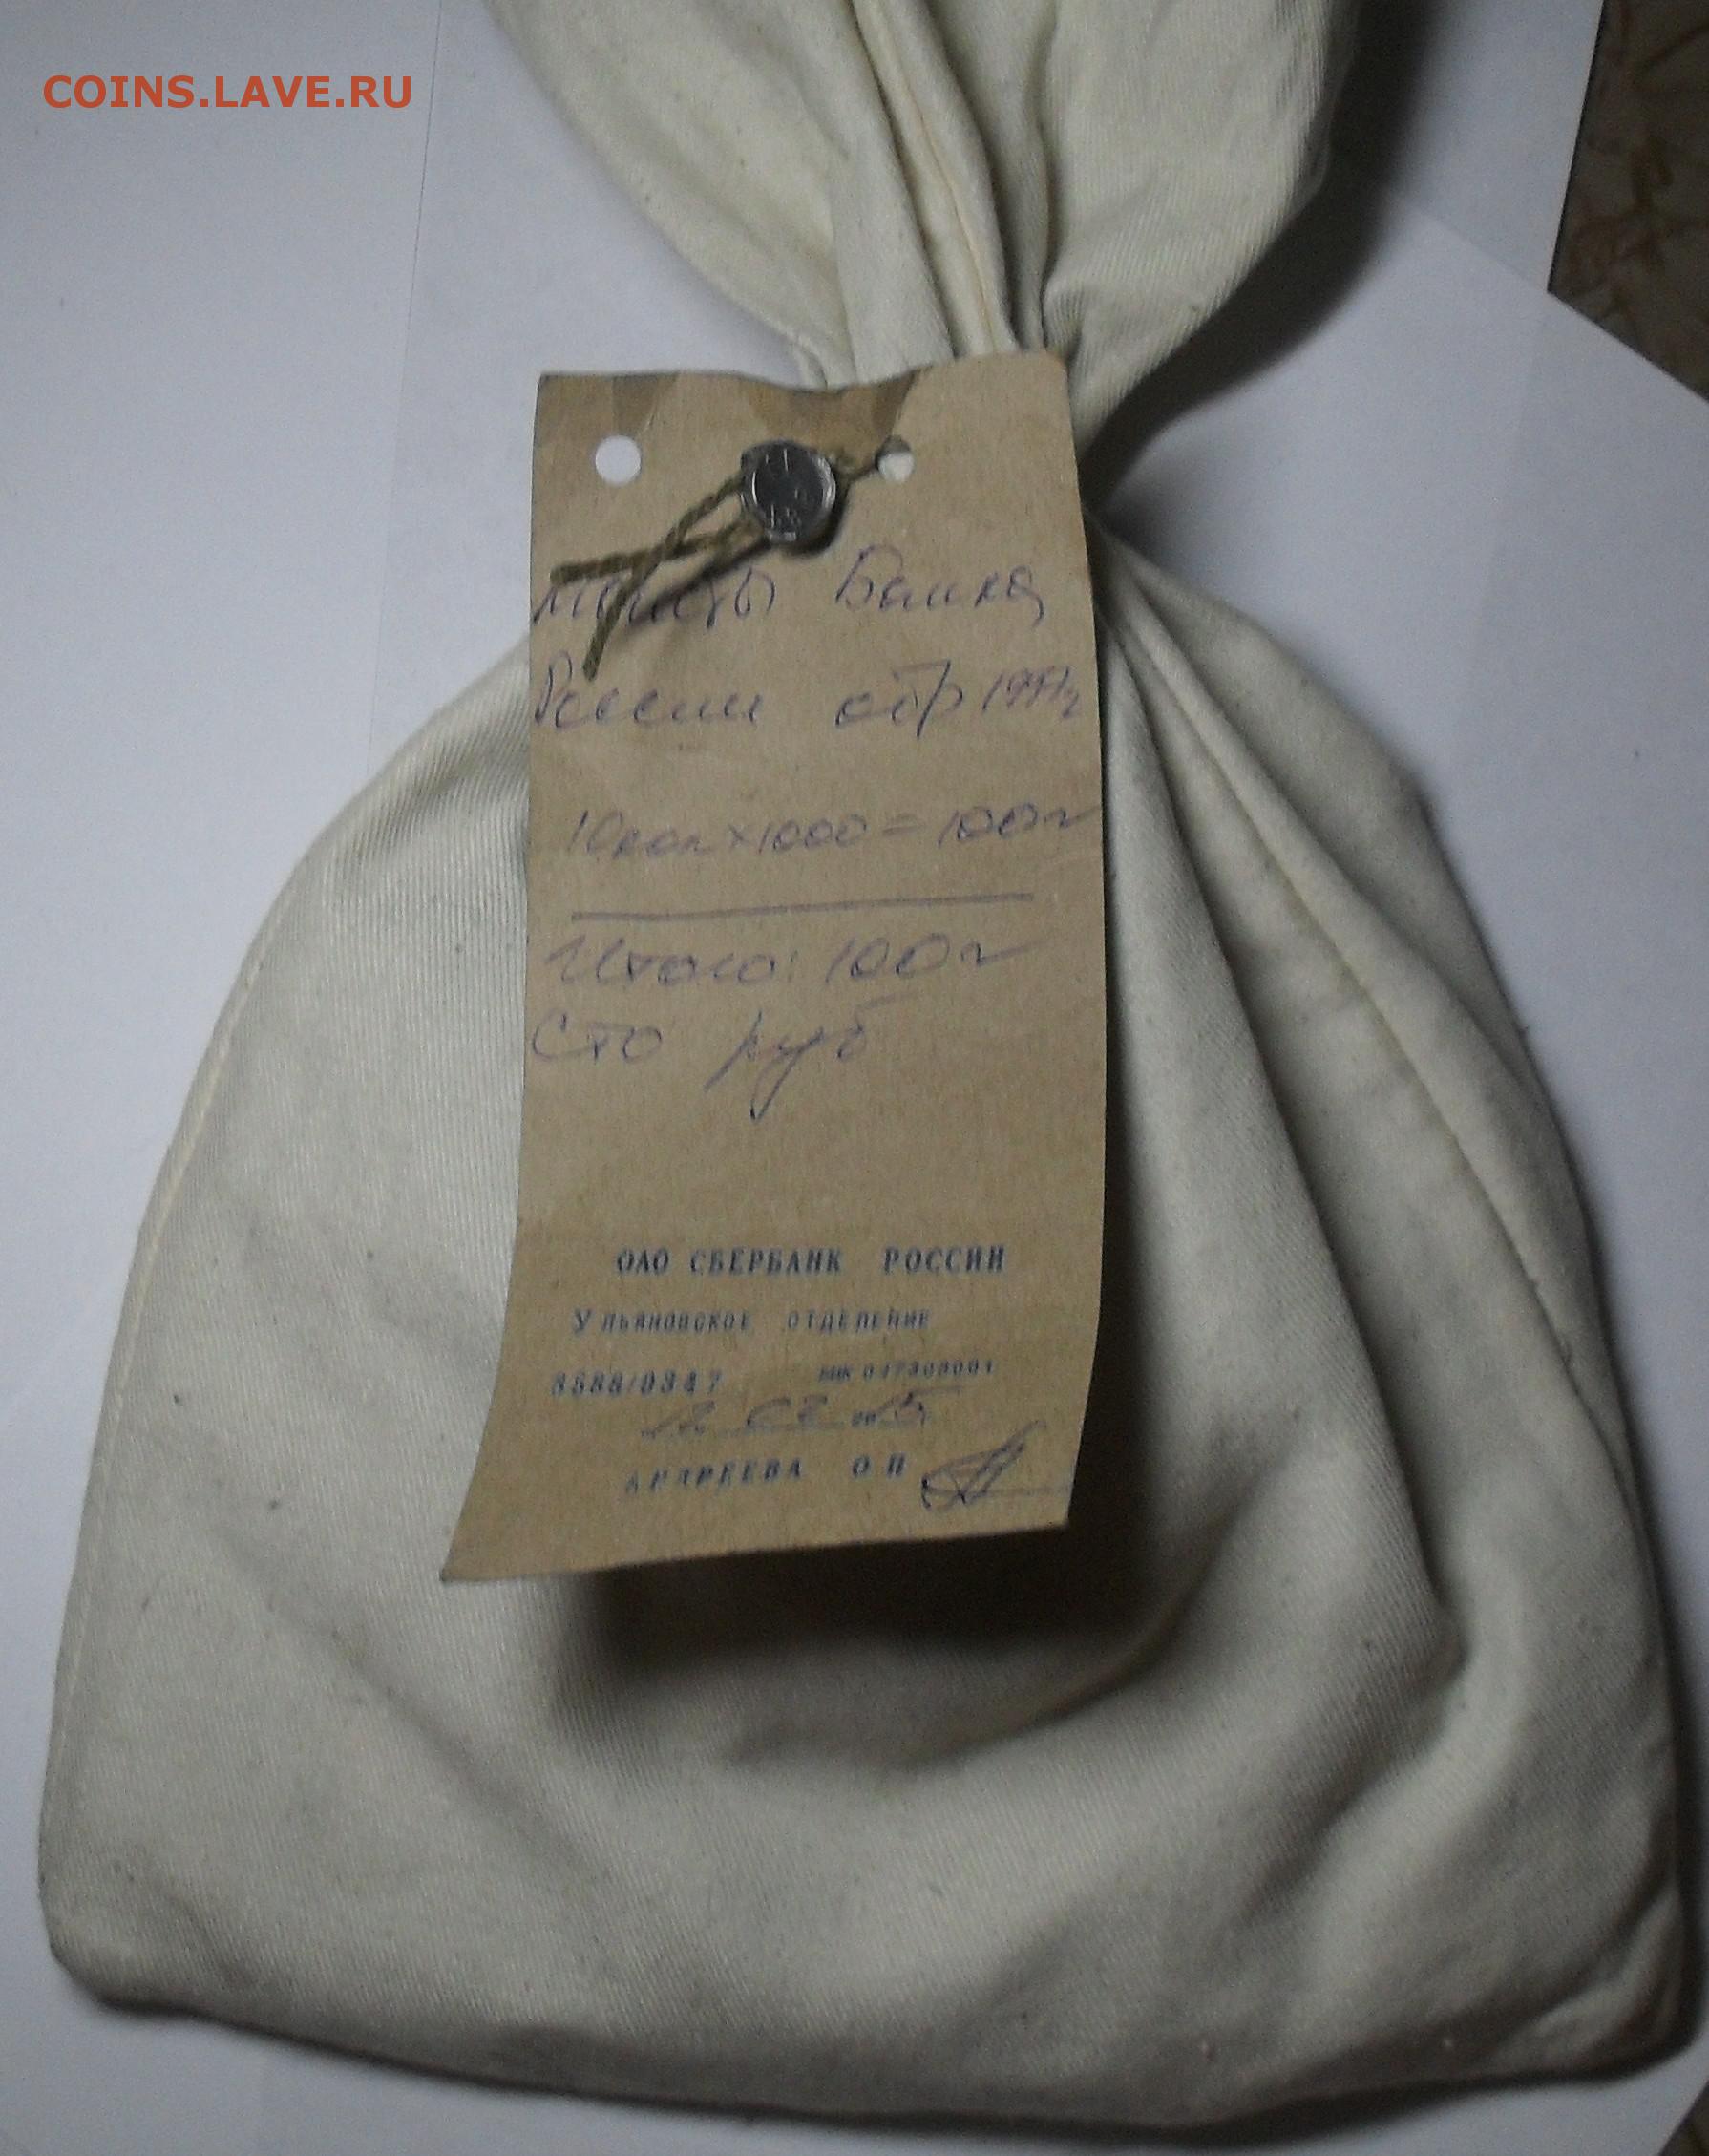 COINS.LAVE.RU
монеты Банка
России обр 1997г
10коп×1000=100р
Итого: 100р
Сто руб
ОАО СБЕРБАНК РОССИИ
УЛЬЯНОВСКОЕ ОТДЕЛЕНИЕ
8588/0347 БИК 047308001
12 02 15
О П